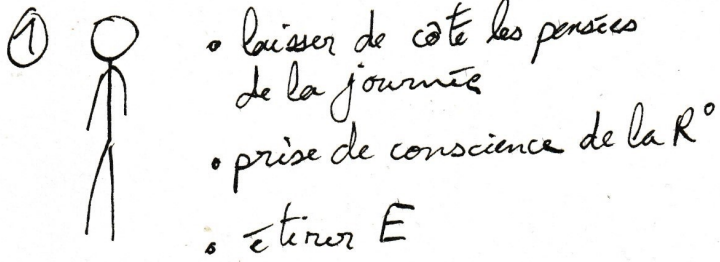 ① • laisser de côté les pensées
de la journée
• prise de conscience de la R°
• étirer E